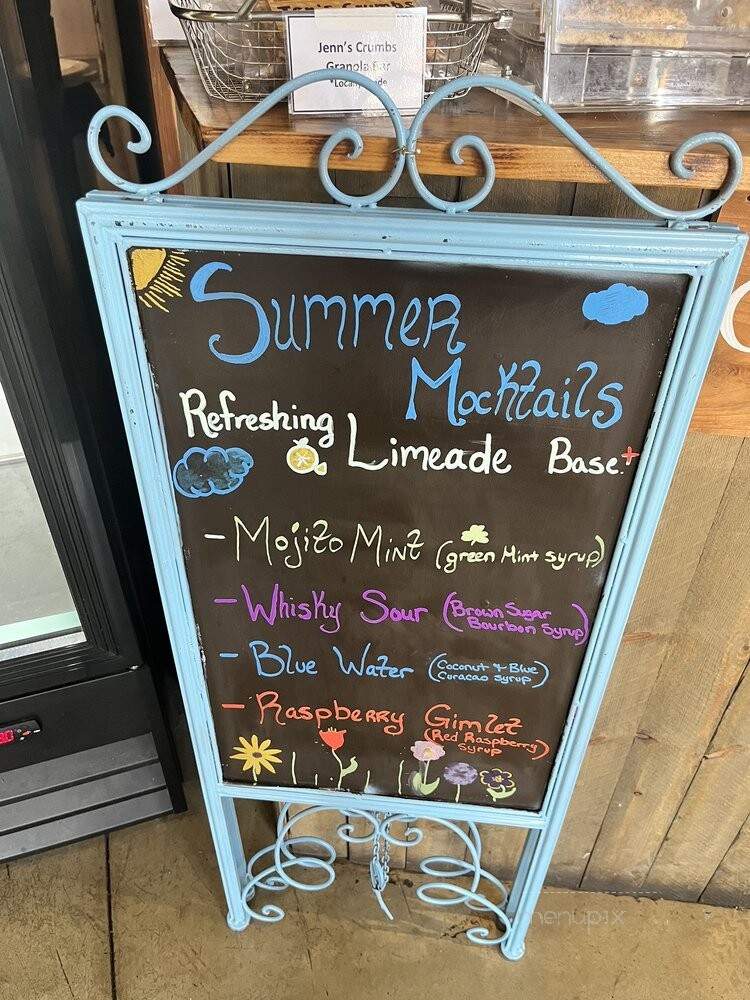 Jenn's Crumbs
Granola Bar
Summer
Mocktails
Refreshing
Limeade Base +
- Mojito Mint (green Mint syrup)
- Whisky Sour (Brown Sugar
Bourbon Syrup)
- Blue Water (Coconut + Blue
Curacao syrup)
- Raspberry Gimlet
(Red Raspberry
syrup)
menupix